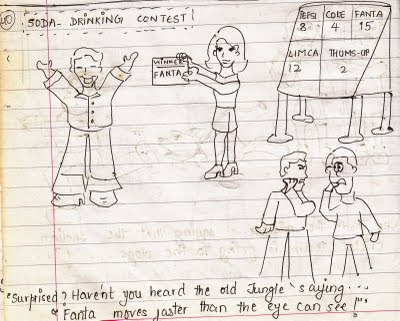 40
SODA-DRINKING CONTEST!
PEPSI COKE FANTA
8 4 15
LIMCA THUMS-UP
12 2
WINNER
FANTA
"Surprised? Haven't you heard the old Jungle saying...
"Fanta moves faster than the eye can see!"